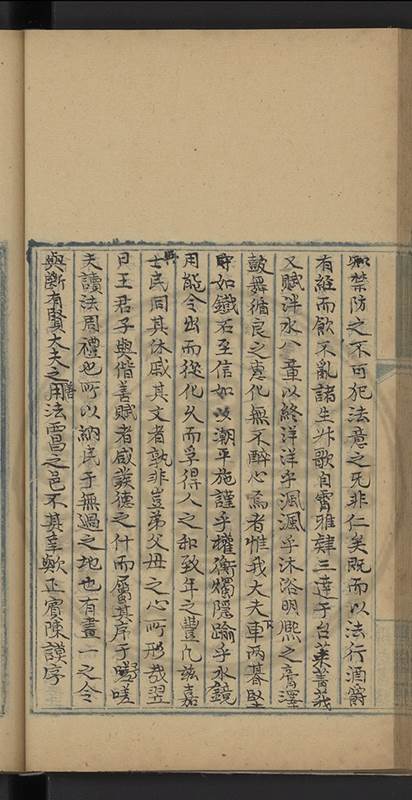 知禁防之不可犯法意之旡非仁矣既而以法行酒爵
有繀而飲不亂諸生升歌自霄雅肄三達于台萊菁莪
又賦泮水八章以終洋洋乎渢渢乎沐浴明熈之膏澤
鼓舞循良之意化無不醉心焉者惟我大夫下車两朞堅
貯如鐵石至信如汝潮平施謹乎權衡燭隱踰乎水鏡
用能令出而從化久而孚得人之和致年之豐凡兹嘉
與士民同其休戚其文者孰非豈弟父母之心所形哉翌
日王君子與偕善賦者咸蕆德之什而屬其序于謨嗟
夫讀法周禮也所以納民于無過之地也有畫一之令
與斷有賢大夫之善用法西昌之邑不其幸歟正賓陳謨序